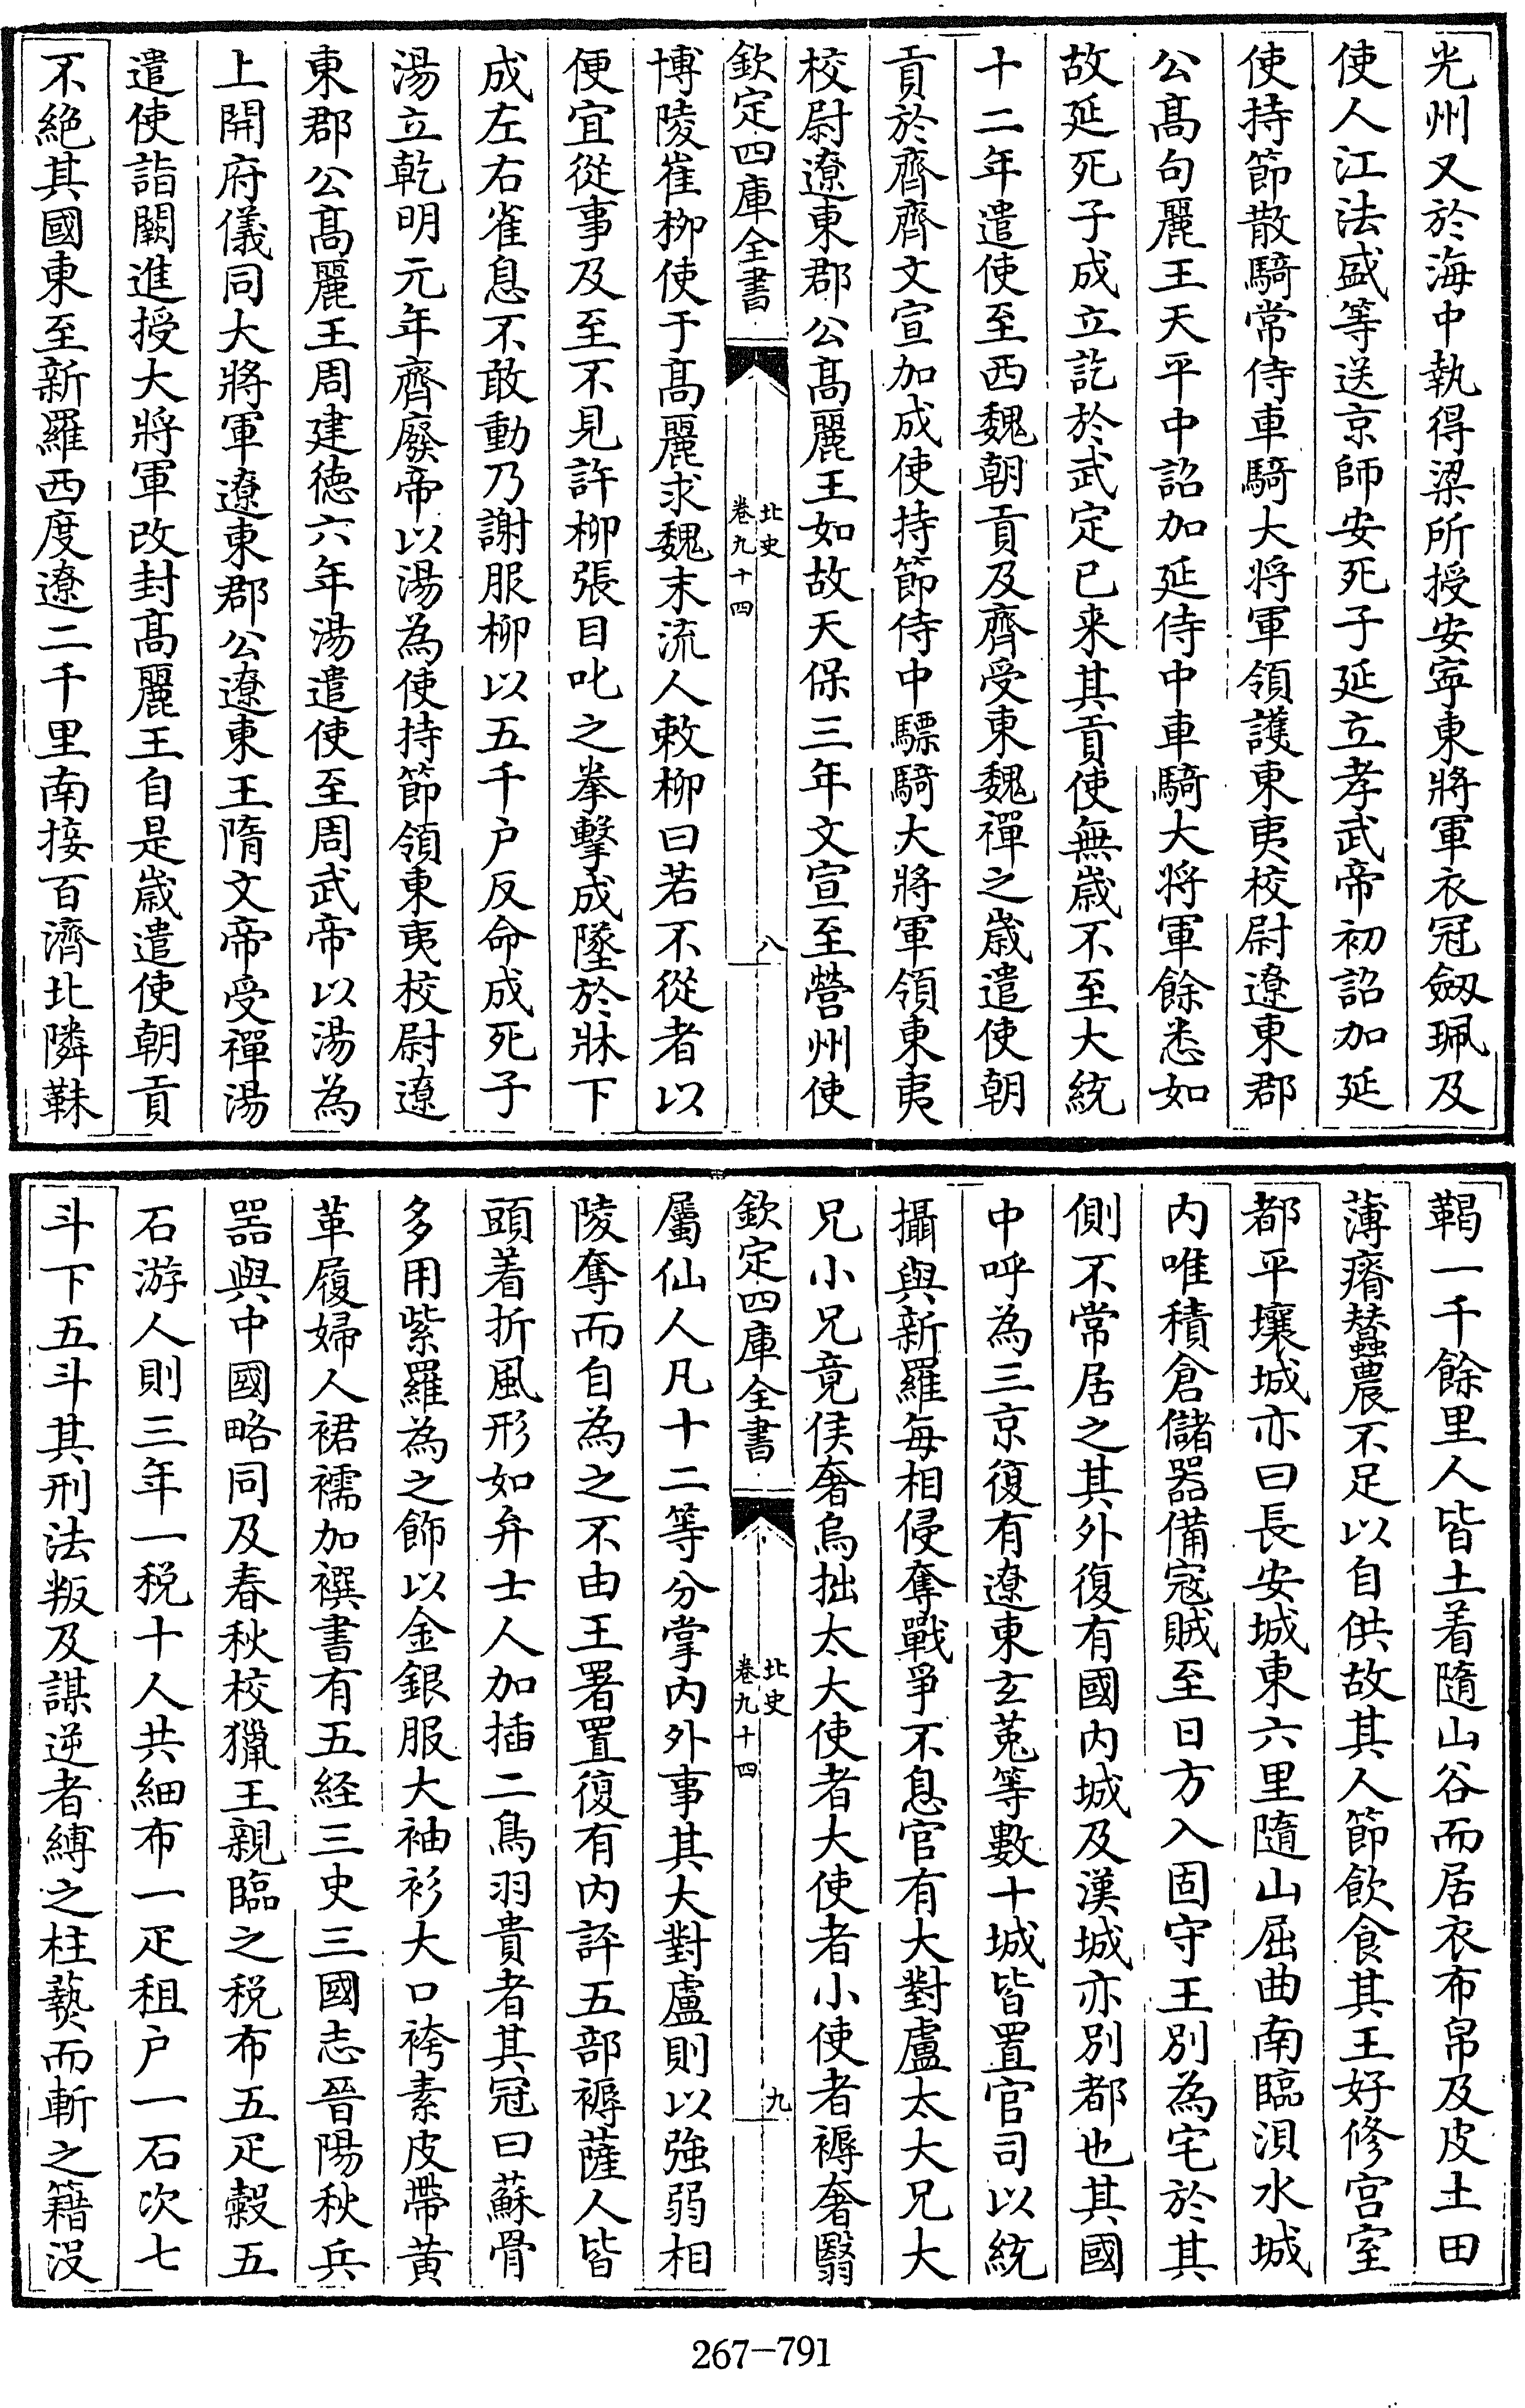 光州又於海中執得梁所授安寧東將軍衣冠劔珮及
使人江法盛等送京師安死子延立孝武帝初詔加延
使持節散騎常侍車騎大將軍領護東夷校尉遼東郡
公髙句麗王天平中詔加延侍中車騎大將軍餘悉如
故延死子成立訖於武定已来其貢使無歳不至大統
十二年遣使至西魏朝貢及齊受東魏禪之歳遣使朝
貢於齊齊文宣加成使持節侍中驃騎大將軍領東夷
校尉遼東郡公髙麗王如故天保三年文宣至營州使
欽定四庫全書
北史
卷九十四
八
博陵崔柳使于髙麗求魏末流人敕柳曰若不從者以
便宜從事及至不見許柳張目叱之拳擊成墜於牀下
成左右雀息不敢動乃謝服柳以五千户反命成死子
湯立乾明元年齊廢帝以湯為使持節領東夷校尉遼
東郡公髙麗王周建徳六年湯遣使至周武帝以湯為
上開府儀同大將軍遼東郡公遼東王隋文帝受禪湯
遣使詣闕進授大將軍改封髙麗王自是歳遣使朝貢
不絶其國東至新羅西度遼二千里南接百濟北隣靺
鞨一千餘里人皆土着隨山谷而居衣布帛及皮土田
薄瘠蠶農不足以自供故其人節飲食其王好修宫室
都平壤城亦曰長安城東六里隨山屈曲南臨浿水城
内唯積倉儲器備寇賊至日方入固守王別為宅於其
側不常居之其外復有國内城及漢城亦別都也其國
中呼為三京復有遼東玄菟等數十城皆置官司以統
攝與新羅每相侵奪戰爭不息官有大對盧太大兄大
兄小兄竟侯奢烏拙太大使者大使者小使者褥奢翳
欽定四庫全書
北史
卷九十四
九
屬仙人凡十二等分掌内外事其大對盧則以強弱相
陵奪而自為之不由王署置復有内評五部褥薩人皆
頭着折風形如弁士人加插二鳥羽貴者其冠曰蘇骨
多用紫羅為之飾以金銀服大袖衫大口袴素皮帶黄
革履婦人裙襦加襈書有五経三史三國志晉陽秋兵
器與中國略同及春秋校獵王親臨之税布五疋穀五
石游人則三年一税十人共細布一疋租户一石次七
斗下五斗其刑法叛及謀逆者縛之柱爇而斬之籍没
267-791